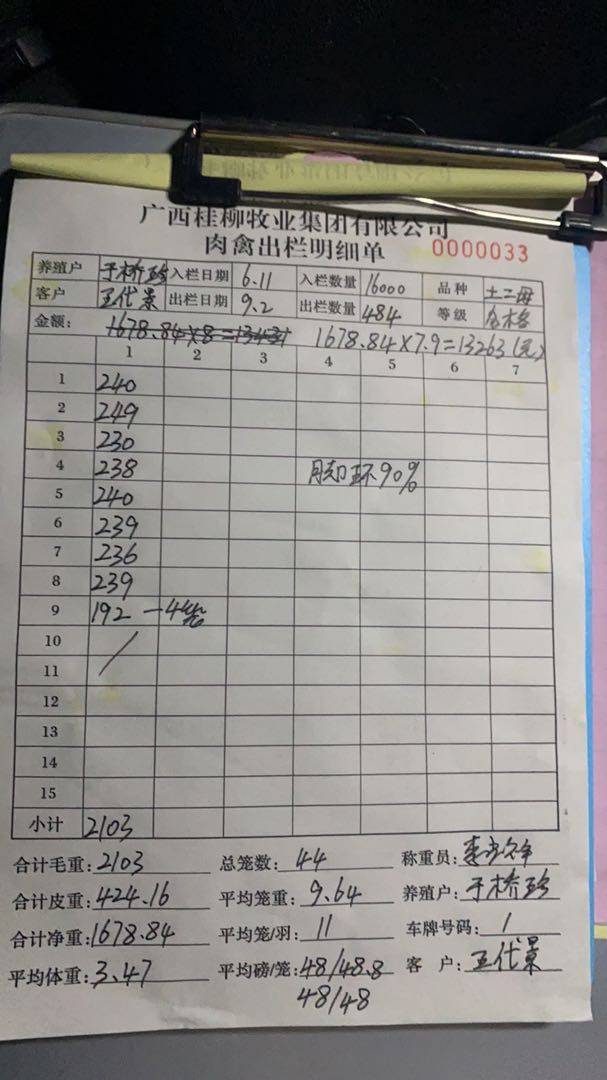 广西桂柳牧业集团有限公司
肉禽出栏明细单 0000033
养殖户 于桥珍 入栏日期 6.11 入栏数量 16000 品种 土二母
客户 王代景 出栏日期 9.2 出栏数量 484 等级 合格
金额: 1678.84×8=13431 1678.84×7.9=13263(元)
1 2 3 4 5 6 7
1 240
2 249
3 230
4 238 脚环90%
5 240
6 239
7 236
8 239
9 192 一4笼
10
11
12
13
14
15
小计 2103
合计毛重:2103 总笼数:44 称重员:
合计皮重:424.16 平均笼重:9.64 养殖户:于桥珍
合计净重:1678.84 平均笼/羽:11 车牌号码:1
平均体重:3.47 平均磅/笼:48/48.8 客户:王代景
48/48